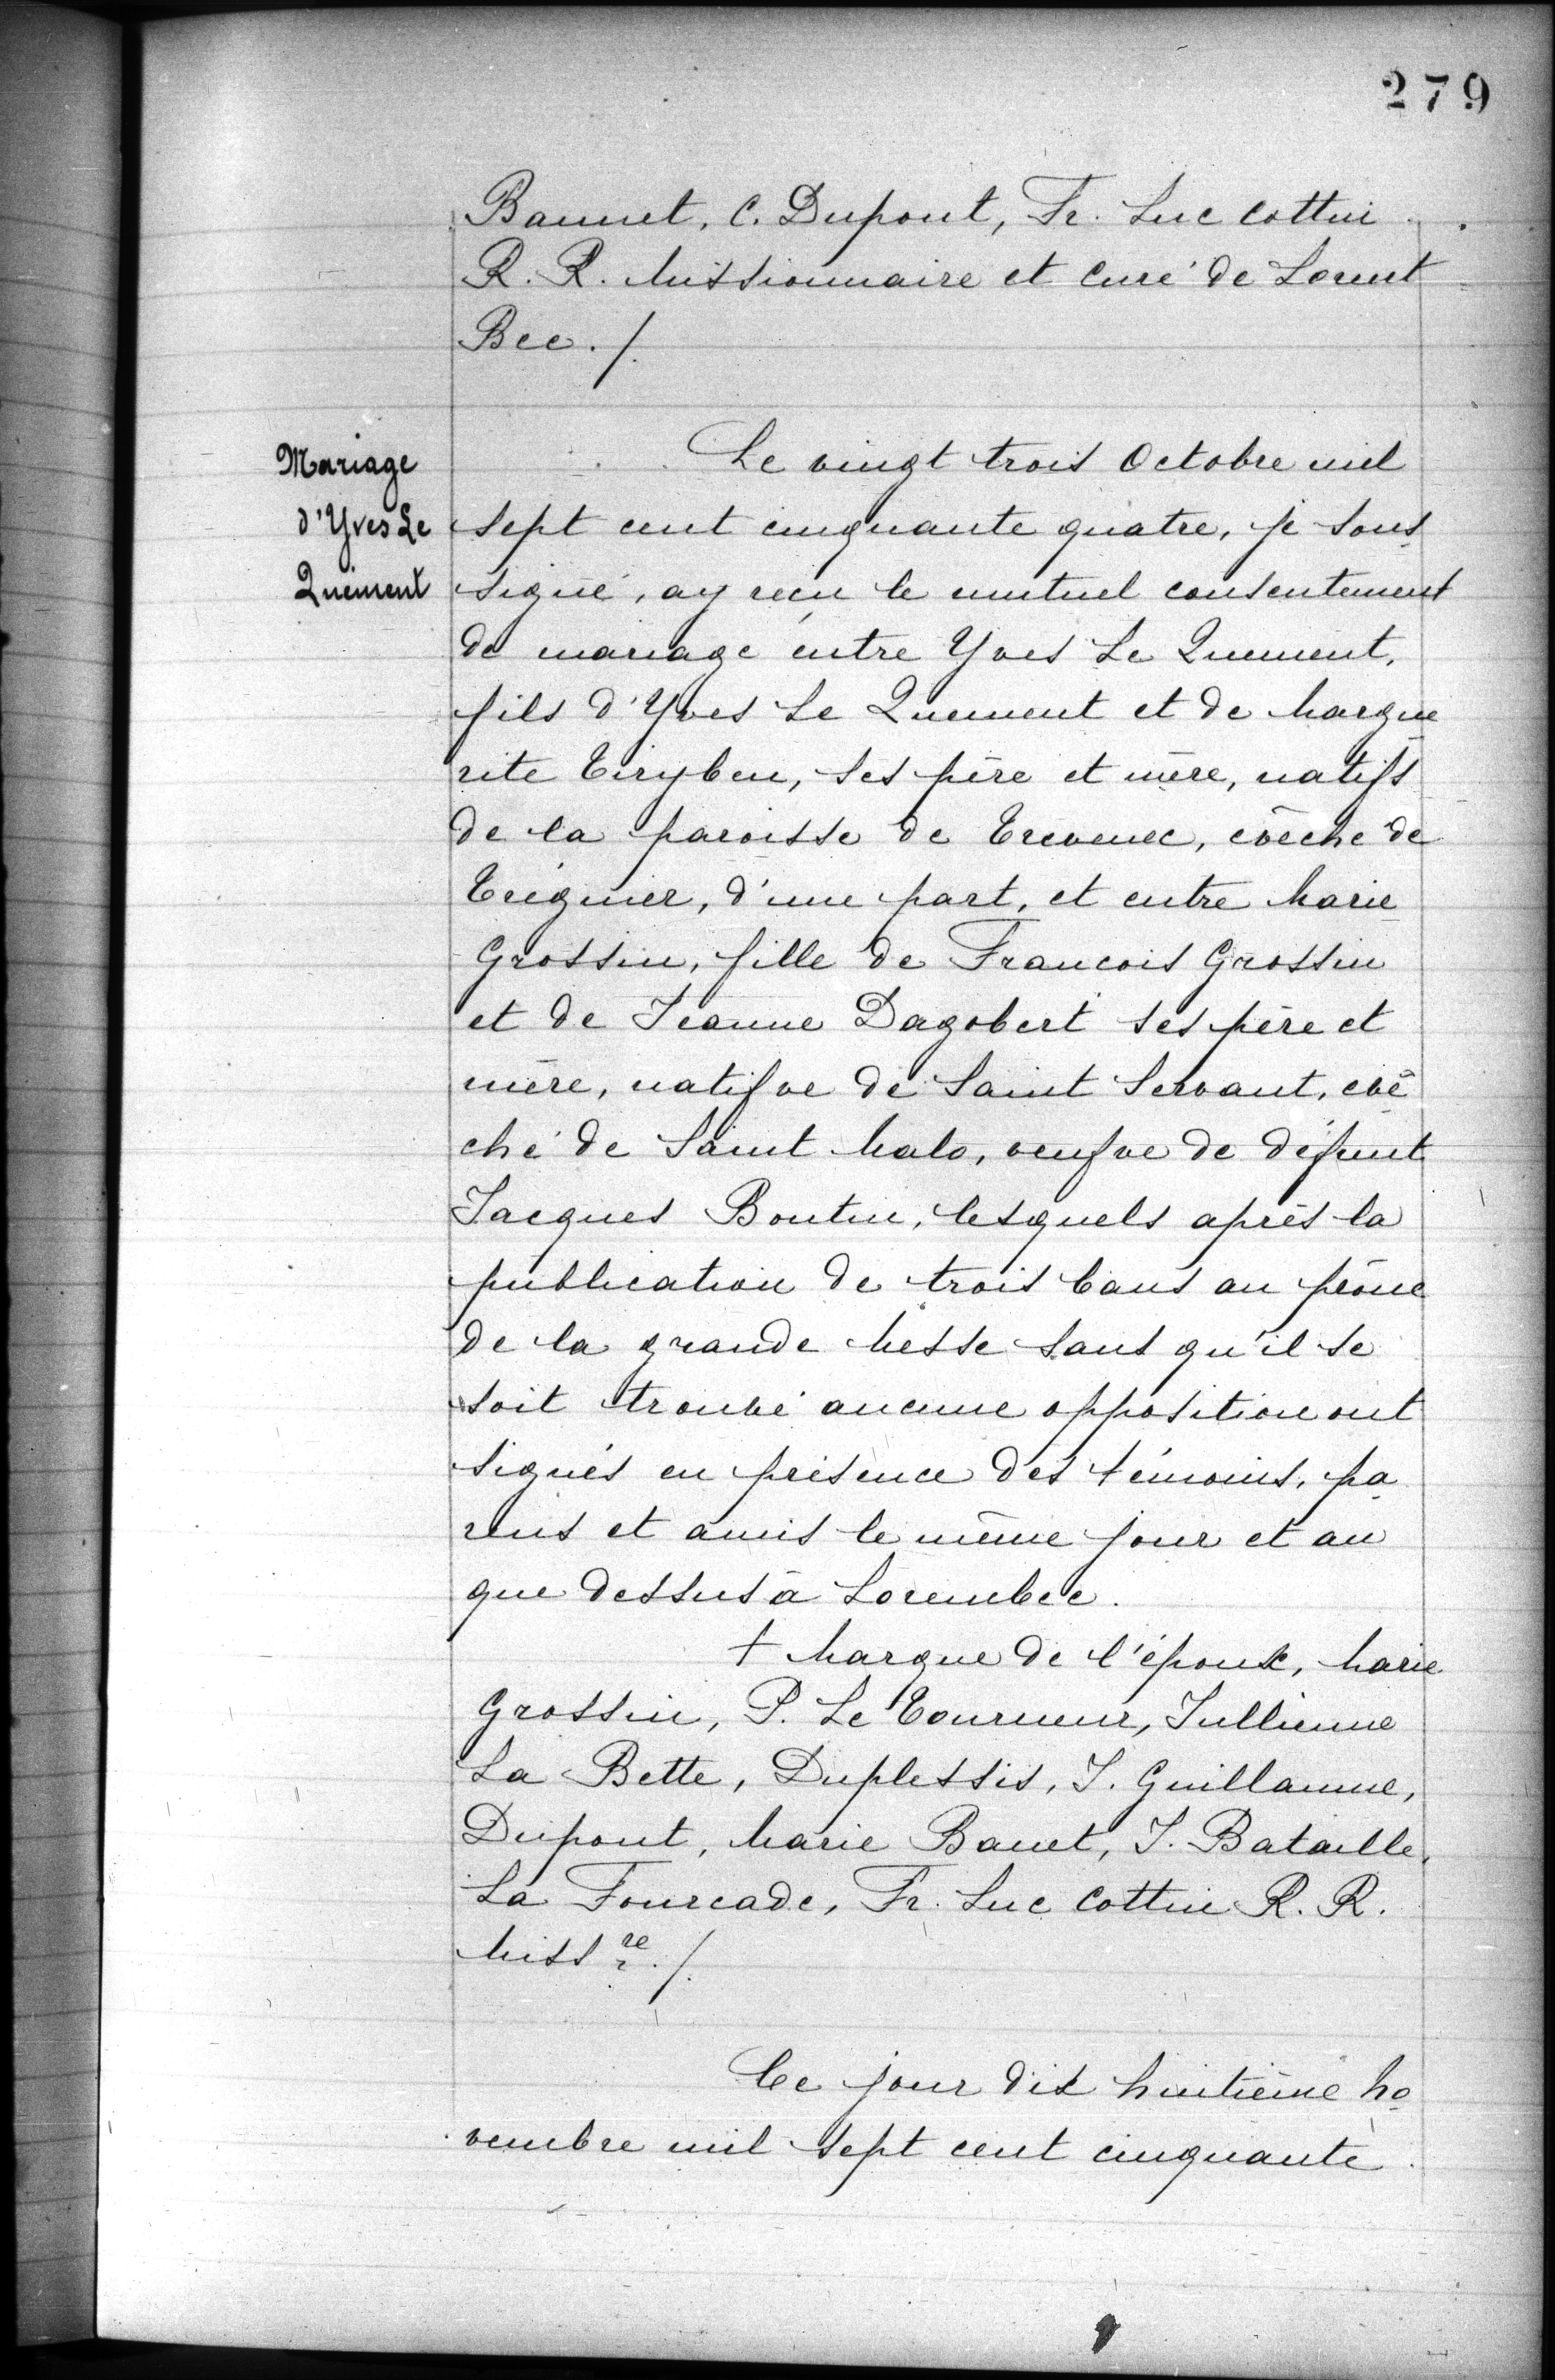 279
Baunet, C. Dupont, Fr. Luc Cottin
R. R. Missionnaire et Curé de Lorent
Bec ./.
Mariage
d'Yves Le
Quément
Le vingt trois Octobre mil
sept cent cinquante quatre, je sous
signé, ay reçu le mutuel consentement
de mariage entre Yves Le Quement,
fils d'Yves Le Quement et de Margue
rite Tiryben, ses père et mère, natifs
de la paroisse de Trevenec, évêché de
Tréguier, d'une part, et entre Marie
Grossin, fille de Francois Grossin
et de Jeanne Dagobert ses père et
mère, natifve de Saint Servant, évê
ché de Saint Malo, veufve de défunt
Jacques Boutin, lesquels après la
publication de trois bans au prône
de la grande Messe sans qu'il se
soit trouvé aucune opposition ont
signés en présence des témoins, pa
rens et amis le même jour et an
que dessus à Lorembec.
+ Marque de l'époux, Marie
Grossin, P. Le Tourneur, Jullienne
La Bette, Duplessis, J. Guillaume,
Dupont, Marie Banet, J. Bataille,
La Fourcade, Fr. Luc Cottin R. R.
Miss re ./.
Ce jour dix huitième No
vembre mil sept cent cinquante